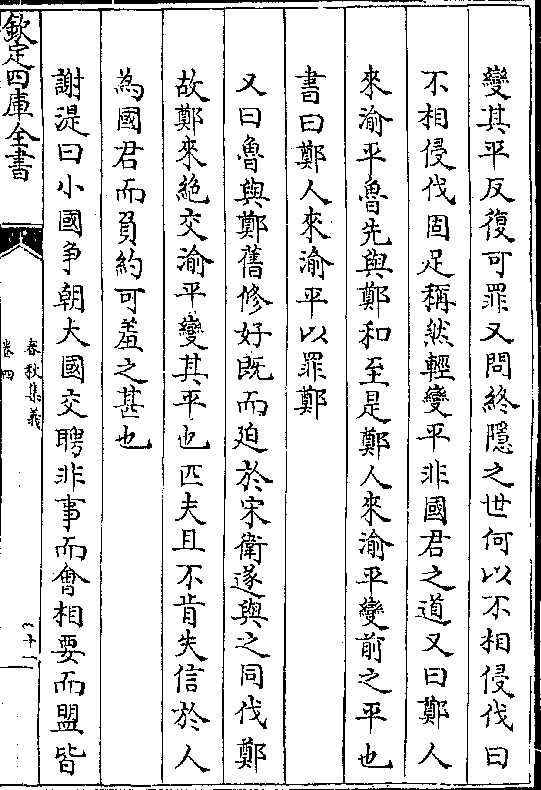 變其平反復可罪又問終隱之世何以不相侵伐曰
不相侵伐固足稱然輕變平非國君之道又曰鄭人
來渝平魯先與鄭和至是鄭人來渝平變前之平也
書曰鄭人來渝平以罪鄭
又曰魯與鄭舊修好既而廹於宋衛遂與之同伐鄭
故鄭來絶交渝平變其平也匹夫且不肯失信於人
為國君而負約可羞之甚也
謝湜曰小國爭朝大國交聘非事而會相要而盟皆
欽定四庫全書
春秋集義
卷四
十一